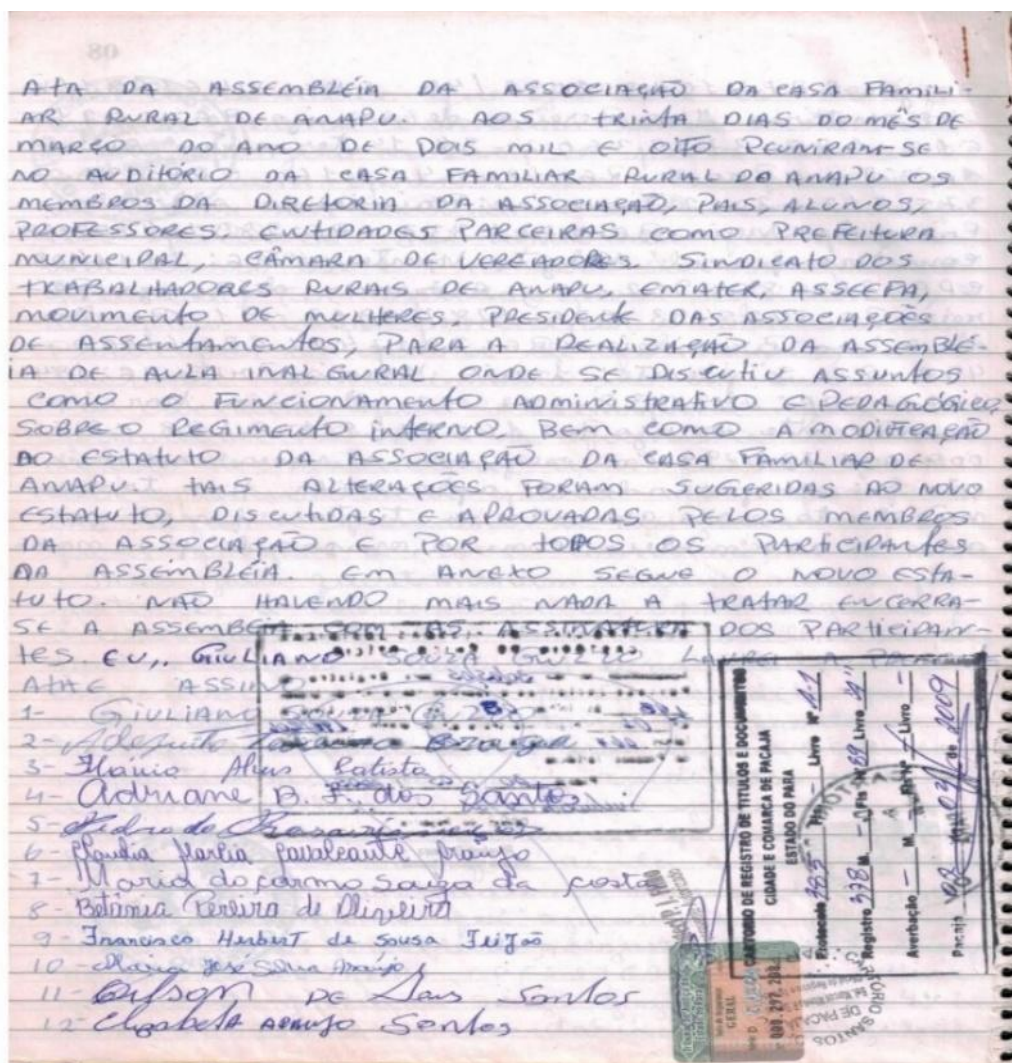 ATA DA ASSEMBLÉIA DA ASSOCIAÇÃO DA CASA FAMILI-
AR RURAL DE ANAPU. AOS TRINTA DIAS DO MÊS DE
MARÇO DO ANO DE DOIS MIL E OITO REUNIRAM-SE
NO AUDITÓRIO DA CASA FAMILIAR RURAL DO ANAPU OS
MEMBROS DA DIRETORIA DA ASSOCIAÇÃO, PAIS, ALUNOS,
PROFESSORES, ENTIDADES PARCEIRAS COMO PREFEITURA
MUNICIPAL, CÂMARA DE VEREADORES, SINDICATO DOS
TRABALHADORES RURAIS DE ANAPU, EMATER, ASSEEFA,
MOVIMENTO DE MULHERES, PRESIDENTE DAS ASSOCIAÇÕES
DE ASSENTAMENTOS, PARA A REALIZAÇÃO DA ASSEMBLÉ-
IA DE AULA INALGURAL ONDE SE DISCUTIU ASSUNTOS
COMO O FUNCIONAMENTO ADMINISTRATIVO E PEDAGÓGICO,
SOBRE O REGIMENTO INTERNO, BEM COMO A MODIFICAÇÃO
DO ESTATUTO DA ASSOCIAÇÃO DA CASA FAMILIAR DE
ANAPU. TAIS ALTERAÇÕES FORAM SUGERIDAS AO NOVO
ESTATUTO, DISCUTIDAS E APROVADAS PELOS MEMBROS
DA ASSOCIAÇÃO E POR TODOS OS PARTICIPANTES
DA ASSEMBLÉIA. EM ANEXO SEGUE O NOVO ESTA-
TUTO. NÃO HAVENDO MAIS NADA A TRATAR ENCERRA-
SE A ASSEMBLEIA COM AS ASSINATURA DOS PARTICIPAN-
TES. EU,, GIULIANO SOUZA GUZZO LAVREI A PRESENTE
ATA E ASSINO
1- GIULIANO SOUZA GUZZO
2-
3- Flávio Alves Batista
4- Adriane B. F. dos Santos
5- Pedro do
6- Claudia Marlia Cavalcante Araújo
7- Maria do Carmo Souza da Costa
8- Betânia Pereira de Oliveira
9- Francisco Herbert de Sousa Feijão
10- Maria José Silva Araújo
11- DE Santos
12- Elizabeth ARAUJO Santos
CARTORIO DE REGISTRO DE TITULOS E DOCUMENTOS
CIDADE E COMARCA DE PACAJA
ESTADO DO PARA
Protocolo 383 Livro Nº A-1
Registro 338 Livro
Averbação — M. — Livro —
Pacajá 2009
GERAL